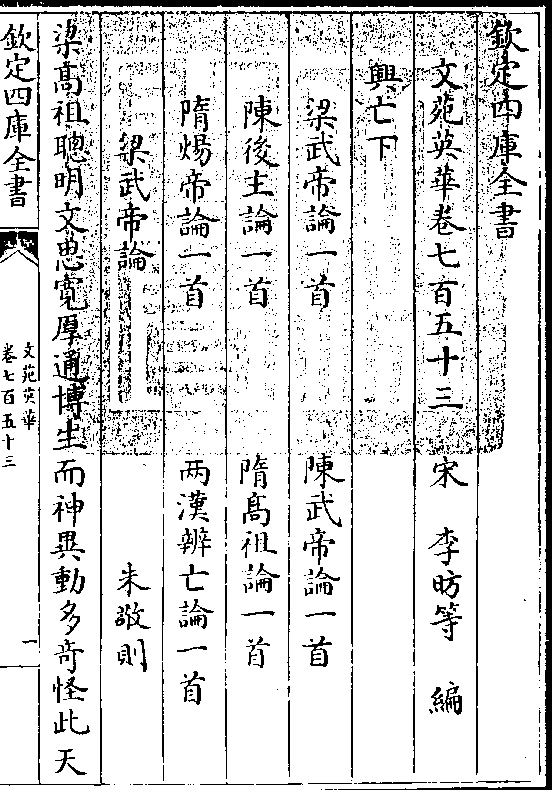 欽定四庫全書
文苑英華卷七百五十三　宋　李昉等　編
興亡下
梁武帝論一首　陳武帝論一首
陳後主論一首　隋髙祖論一首
隋煬帝論一首　兩漢辨亡論一首
梁武帝論　朱敬則
梁髙祖聰明文思寛厚通博生而神異動多奇怪此天
欽定四庫全書
文苑英華
卷七百五十三
一